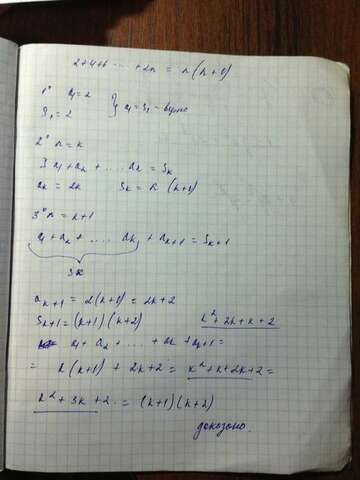 2+4+6 ... +2n = n(n+1)
1° a₁=2
S₁=2 } a₁=S₁ - верно
2° n=k
a₁+a₂+ .... aₖ = Sₖ
aₖ = 2k Sₖ = k (k+1)
3° n=k+1
a₁+a₂+ .... aₖ + aₖ₊₁ = Sₖ₊₁
Sₖ
aₖ₊₁ = 2(k+1) = 2k+2
Sₖ₊₁ = (k+1)(k+2) k²+2k+k+2
a₁+a₂+ ... + aₖ + aₖ₊₁ =
= k(k+1) + 2k+2 = k²+k+2k+2 =
k²+3k+2 = (k+1)(k+2)
доказано.